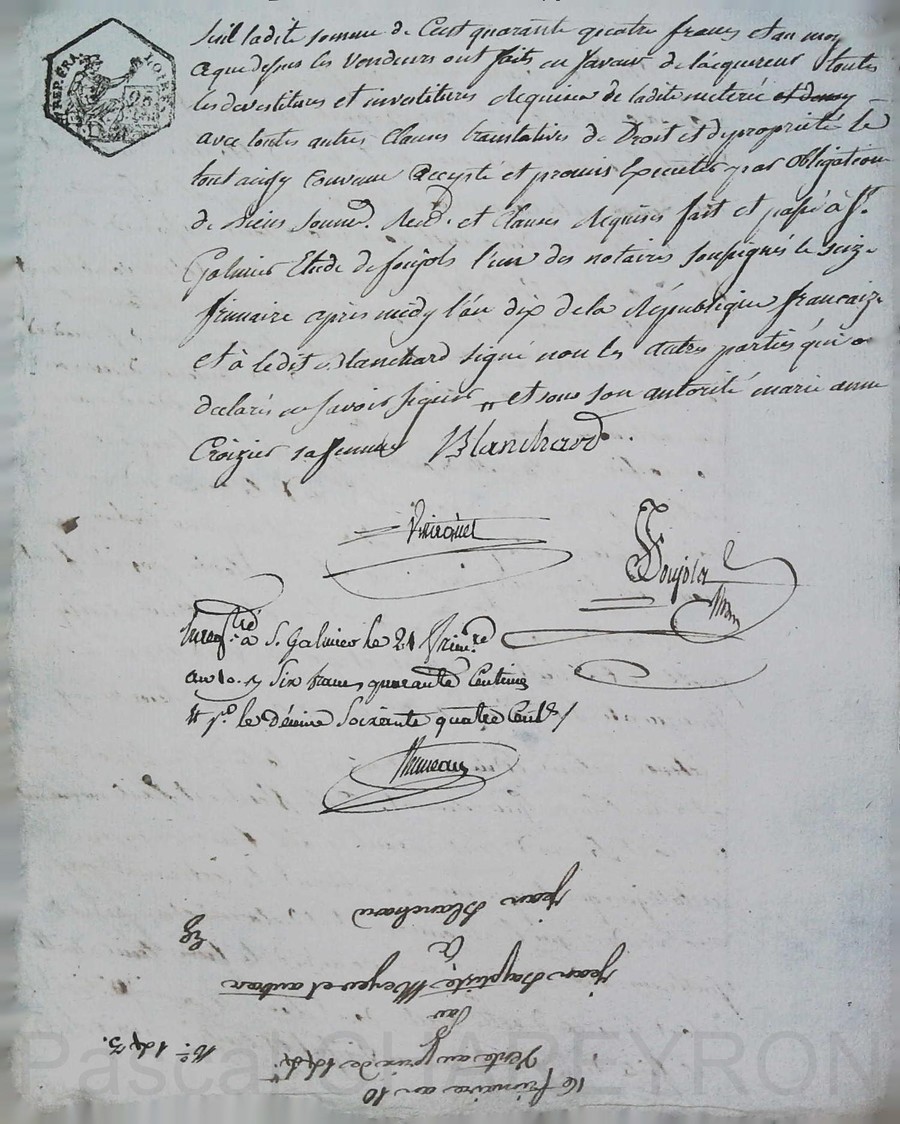 REP. FRA
LOIRE
25
ladite somme de Cent quarante quatre francs et au moy
a que dessus les Vendeurs ont faits en faveur de l'acquereur toutes
les devestitures et investitures Requises de ladite meterée
avec toutes autres Clauses translatives de Droit et de propriété le
tout ainsy Convenu accepté et promis Executer par obligation
de Biens Soumd. Rend. et Clauses Requises fait et passé à St.
Galmier Etude de foujols l'un des notaires soussignés le seize
frimaire après midy l'an dix de la République francaize
et à ledit Blanchard signé non les autres parties qui o
declaré ne savoir signer " et sous son autorité marie anne
Croizier sa femme Blanchard
foujols
Enregtré à S. Galmier le 21 frimre
an 10. Six francs quarante Centimes
pr. le Décime Soixante quatre Cents
16 frimaire an 10
Vente au prix de
par
Jean Baptiste Meyer et autres
à
Jean Blanchard
Pascal CHAPEYRON